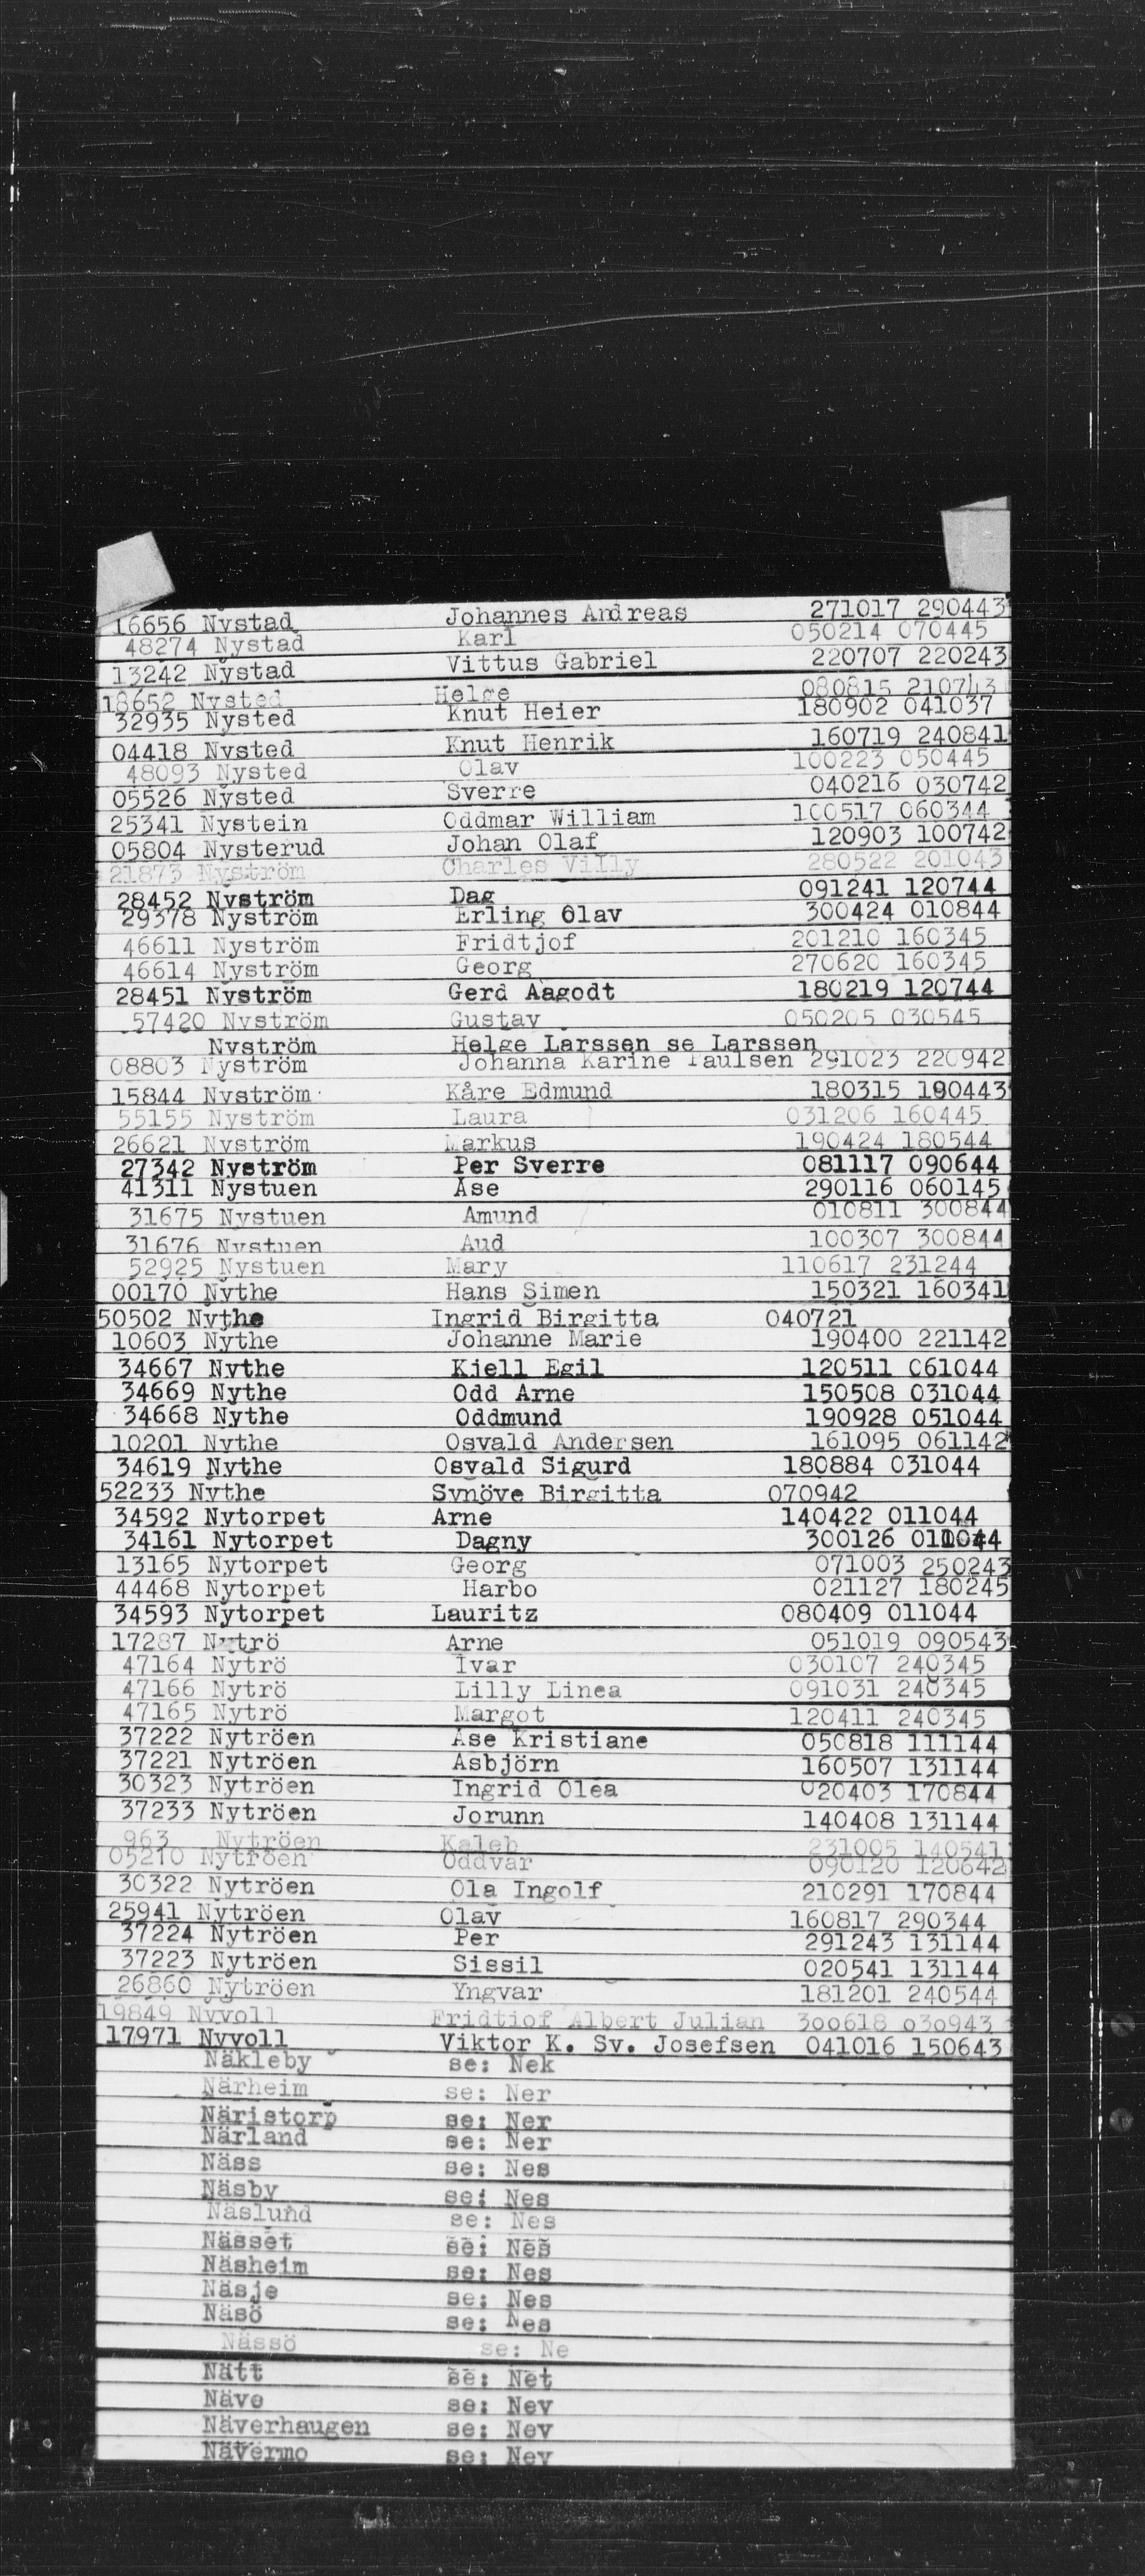 16656 Nystad Johannes Andreas 271017 290443
48274 Nystad Karl 050214 070445
13242 Nystad Vittus Gabriel 220707 220243
18652 Nysted Helge 080815 210743
32935 Nysted Knut Heier 180902 041037
04418 Nysted Knut Henrik 160719 240841
48093 Nysted Olav 100223 050445
05526 Nysted Sverre 040216 030742
25341 Nystein Oddmar William 100517 060344
05804 Nysterud Johan Olaf 120903 100742
21873 Nyström Charles Villy 280522 201043
28452 Nyström Dag 091241 120744
29378 Nyström Erling Olav 300424 010844
46611 Nyström Fridtjof 201210 160345
46614 Nyström Georg 270620 160345
28451 Nyström Gerd Aagodt 180219 120744
57420 Nyström Gustav 050205 030545
Nyström Helge Larssen se Larssen
08803 Nyström Johanna Karine Paulsen 291023 220942
15844 Nyström Kåre Edmund 180315 190443
55155 Nyström Laura 031206 160445
26621 Nyström Markus 190424 180544
27342 Nyström Per Sverre 081117 090644
41311 Nystuen Åse 290116 060145
31675 Nystuen Amund 010811 300844
31676 Nystuen Aud 100307 300844
52925 Nystuen Mary 110617 231244
00170 Nythe Hans Simen 150321 160341
50502 Nythe Ingrid Birgitta 040721
10603 Nythe Johanne Marie 190400 221142
34667 Nythe Kjell Egil 120511 061044
34669 Nythe Odd Arne 150508 031044
34668 Nythe Oddmund 190928 051044
10201 Nythe Osvald Andersen 161095 061142
34619 Nythe Osvald Sigurd 180884 031044
52233 Nythe Synöve Birgitta 070942
34592 Nytorpet Arne 140422 011044
34161 Nytorpet Dagny 300126 011044
13165 Nytorpet Georg 071003 250243
44468 Nytorpet Harbo 021127 180245
34593 Nytorpet Lauritz 080409 011044
17287 Nytrö Arne 051019 090543
47164 Nytrö Ivar 030107 240345
47166 Nytrö Lilly Linea 091031 240345
47165 Nytrö Margot 120411 240345
37222 Nytröen Åse Kristiane 050818 111144
37221 Nytröen Asbjörn 160507 131144
30323 Nytröen Ingrid Olea 020403 170844
37233 Nytröen Jorunn 140408 131144
963 Nytröen Kaleb 231005 140541
05210 Nytröen Oddvar 090120 120642
30322 Nytröen Ola Ingolf 210291 170844
25941 Nytröen Olav 160817 290344
37224 Nytröen Per 291243 131144
37223 Nytröen Sissil 020541 131144
26860 Nytröen Yngvar 181201 240544
19849 Nyvoll Fridtjof Albert Julian 300618 030943
17971 Nyvoll Viktor K. Sv. Josefsen 041016 150643
Näkleby se: Nek
Närheim se: Ner
Näristorp se: Ner
Närland se: Ner
Näss se: Nes
Näsby se: Nes
Näslund se: Nes
Nässet se: Nes
Näsheim se: Nes
Näsje se: Nes
Näsö se: Nes
Nässö se: Ne
Nätt se: Net
Näve se: Nev
Näverhaugen se: Nev
Nävermo se: Nev